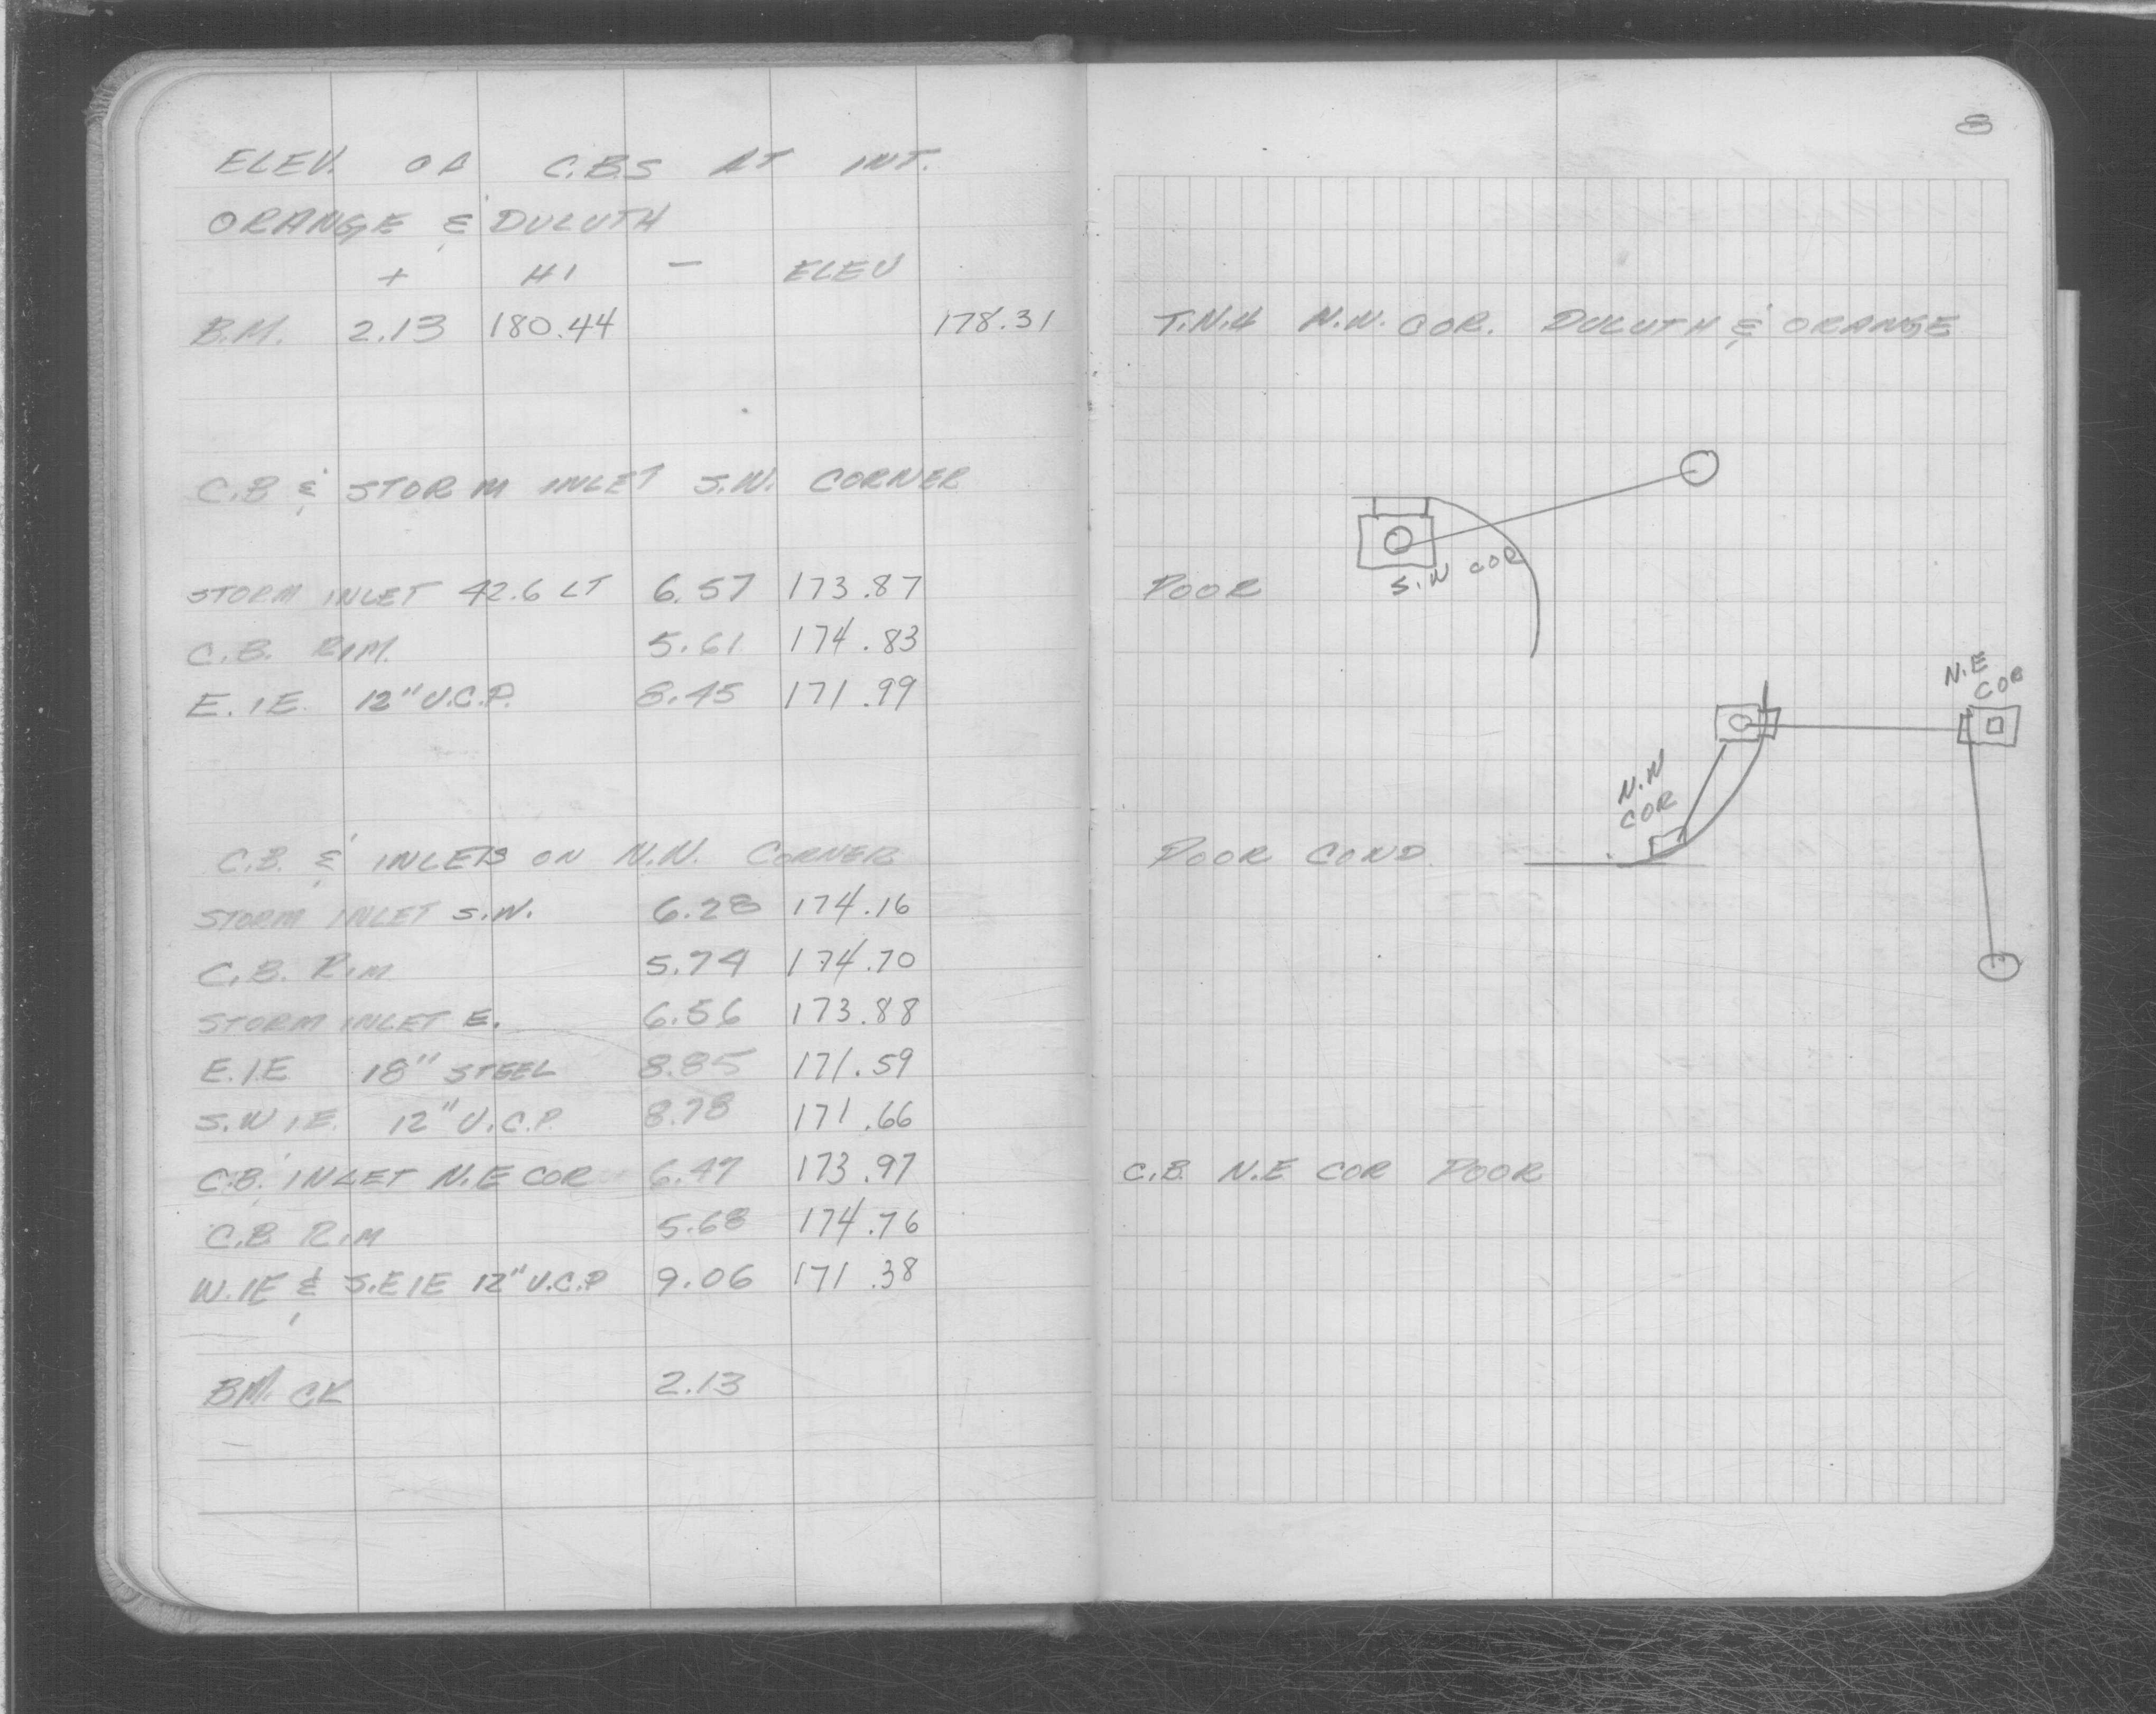 ELEV. OF C.B.S AT INT.
ORANGE & DULUTH
+ HI - ELEV
B.M. 2.13 180.44 178.31
C.B & STORM INLET S.W. CORNER
STORM INLET 42.6 LT 6.57 173.87
C.B. RIM. 5.61 174.83
E. IE. 12" V.C.P. 8.45 171.99
C.B. & INLETS ON N.W. CORNER
STORM INLET S.W. 6.28 174.16
C.B. RIM 5.74 174.70
STORM INLET E. 6.56 173.88
E. IE 18" STEEL 8.85 171.59
S.W IE. 12" V.C.P. 8.78 171.66
C.B. INLET N.E COR 6.47 173.97
C.B. RIM 5.68 174.76
W. IE & S.E IE 12" V.C.P 9.06 171.38
BM. CK 2.13
8
T.N.4 N.W. COR. DULUTH & ORANGE
S.W COR
POOR
N.E
COR
N.W
COR
POOR COND.
C.B. N.E COR POOR